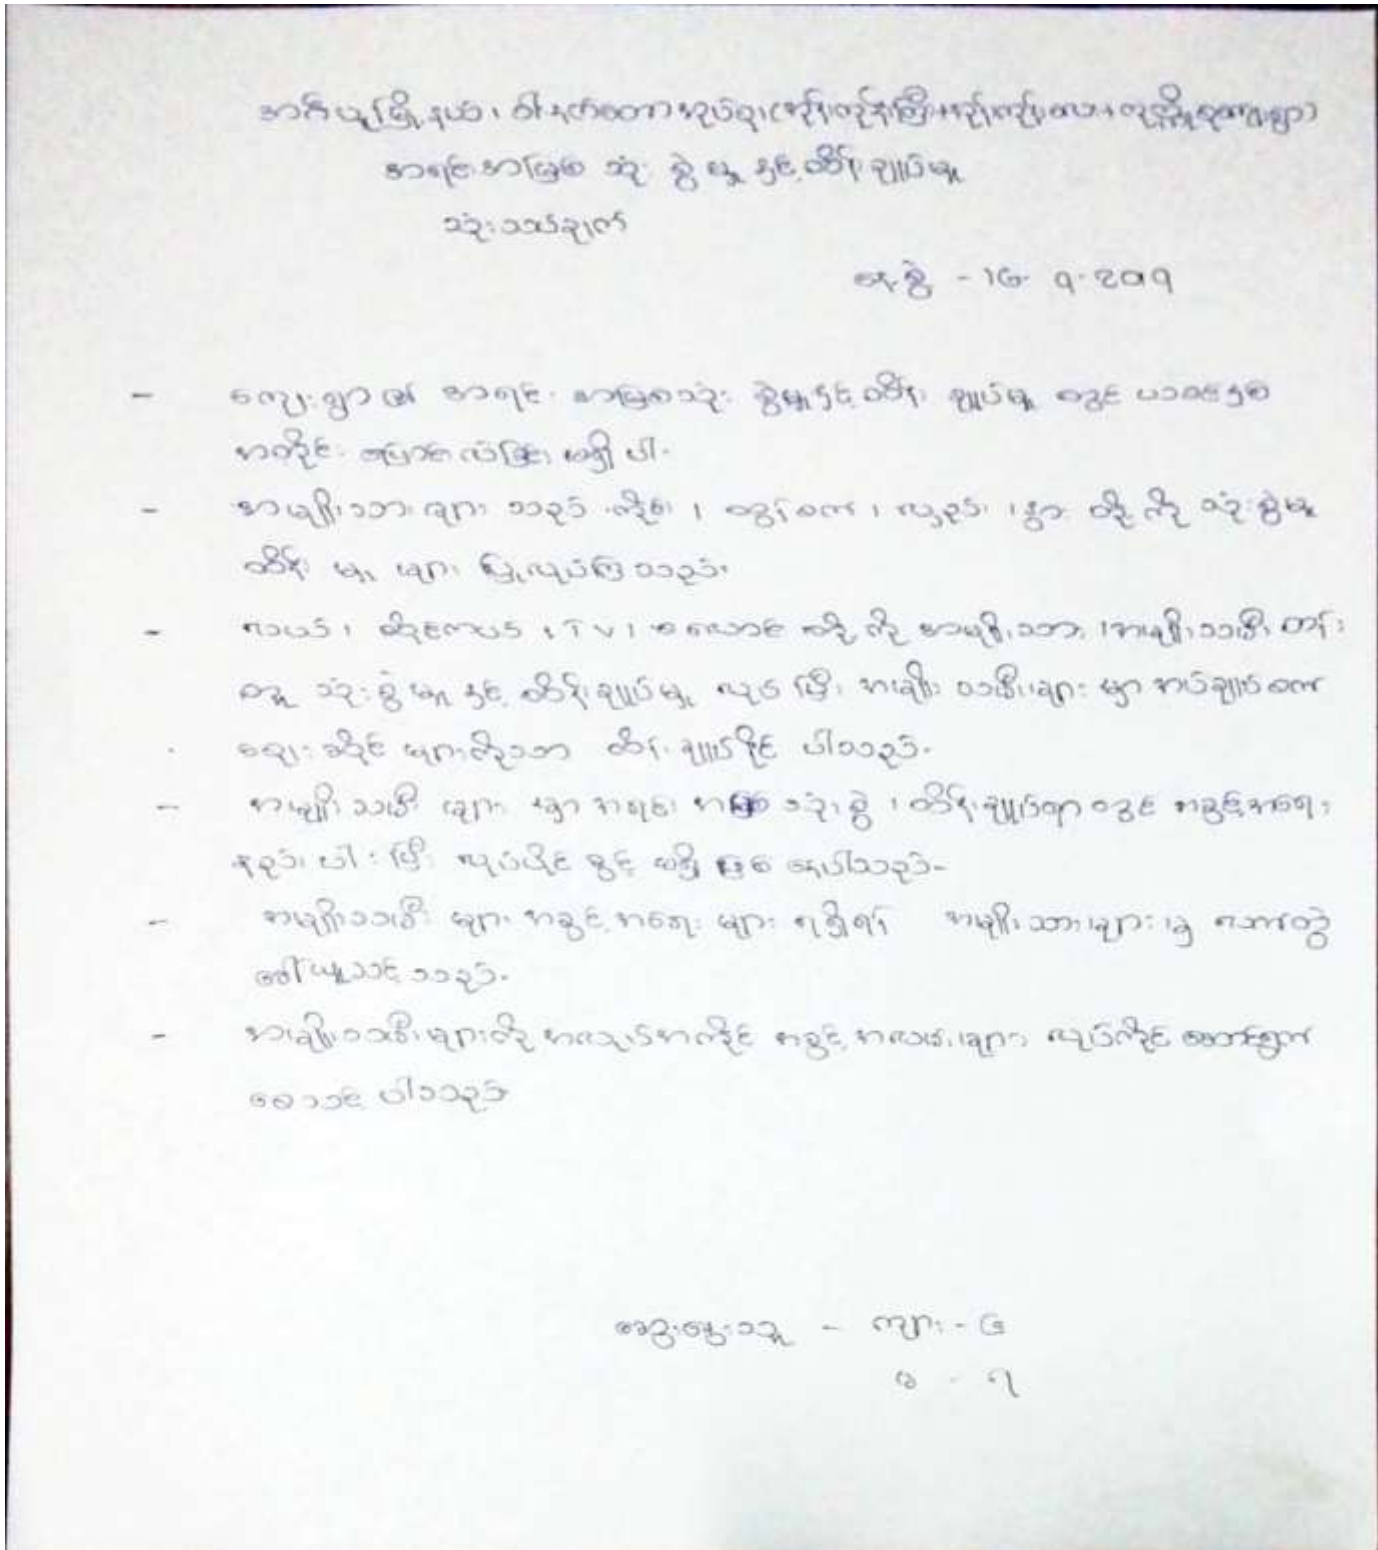 အင်းယုမြို့နယ်၊ ဝါးနက်တောအုပ်စု၊
အရင်းအမြစ် သုံးစွဲမှု နှင့် ထိန်းချုပ်မှု
သုံးသပ်ချက်
နေ့စွဲ - ၁၆. ၇. ၁၇
- ကျေးရွာ၏ အရင်းအမြစ်သုံးစွဲမှုနှင့် ထိန်းချုပ်မှု တွင် ယခင်နှစ်
အတိုင်း ပြောင်းလဲခြင်း မရှိပါ။
- အမျိုးသားများ သည် ၊ ထွန်စက်၊ လှည်း၊ နွား တို့ကို သုံးစွဲမှု
ထိန်းမှု များ ပြုလုပ်ကြသည်။
- ဆိုင်ကယ်၊ TV၊ တို့ကို အမျိုးသား၊ အမျိုးသမီး တန်း
တူ သုံးစွဲမှု နှင့် ထိန်းချုပ်မှု လုပ်ပြီး အမျိုးသမီးများ မှာ အပ်ချုပ်စက်
ဈေးဆိုင် များကိုသာ ထိန်းချုပ်နိုင် ပါသည်။
- အမျိုးသမီး များ မှာ အရင်းအမြစ် သုံးစွဲ၊ ထိန်းချုပ်ရာတွင် အခွင့်အရေး
နည်းပါးပြီး လုပ်ပိုင်ခွင့် မရှိ ဖြစ်နေပါသည်။
- အမျိုးသမီး များ အခွင့်အရေး များ ရရှိရန် အမျိုးသားများမှ လက်တွဲ
ခေါ်ယူသင့်သည်။
- အမျိုးသမီးများကို အလုပ်အကိုင် အခွင့်အလမ်းများ လုပ်ကိုင် ဆောင်ရွက်
စေသင့် ပါသည်။
ဆွေးနွေးသူ - ကျား - ၆
မ - ၇